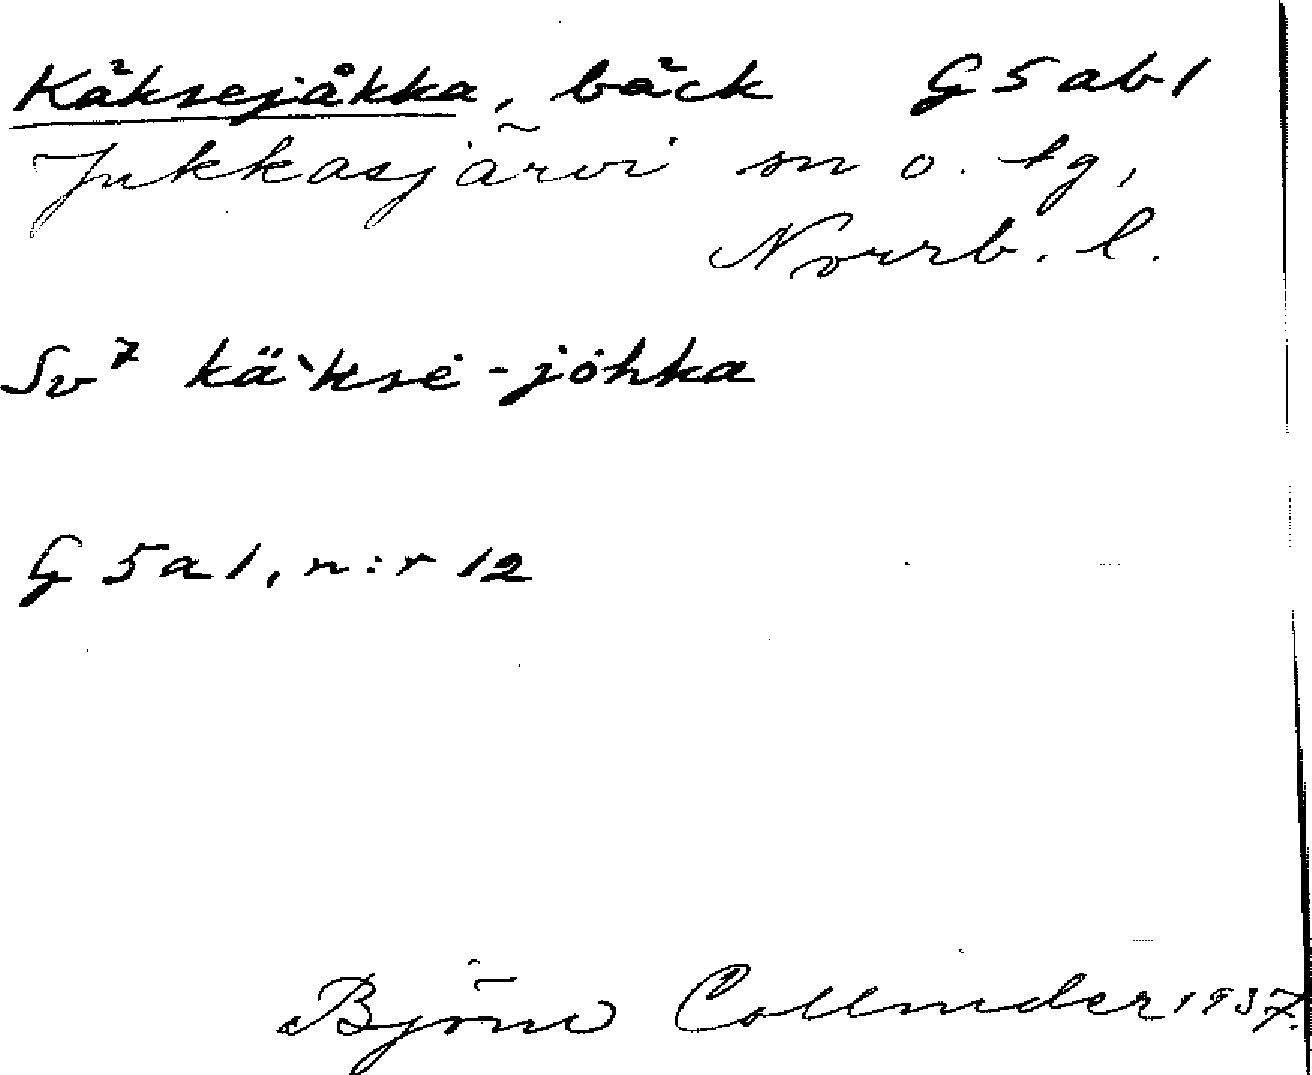 Käksejåkka, bäck G5ab1
Jukkasjärvi sn o. tg,
Norrb. l.
Sv⁷ kä`ksė-jȯhka
G5a1, n:r 12
Björn Collinder 1937.